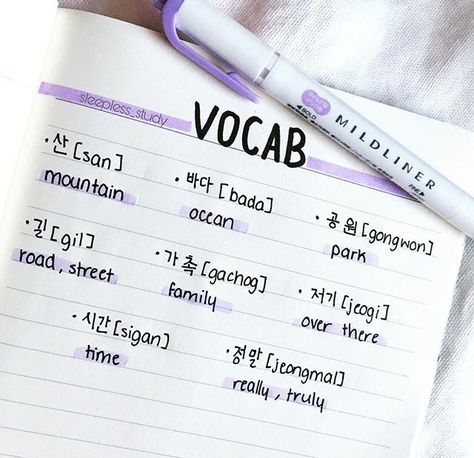 sleepless_study
VOCAB
· 산 [san]
mountain
· 바다 [bada]
ocean
· 공원 [gongwon]
park
· 길 [gil]
road, street
· 가촉 [gachog]
family
· 저기 [jeogi]
over there
· 시간 [sigan]
time
· 정말 [jeongmal]
really, truly
BOLD
MILDLINER
FINE